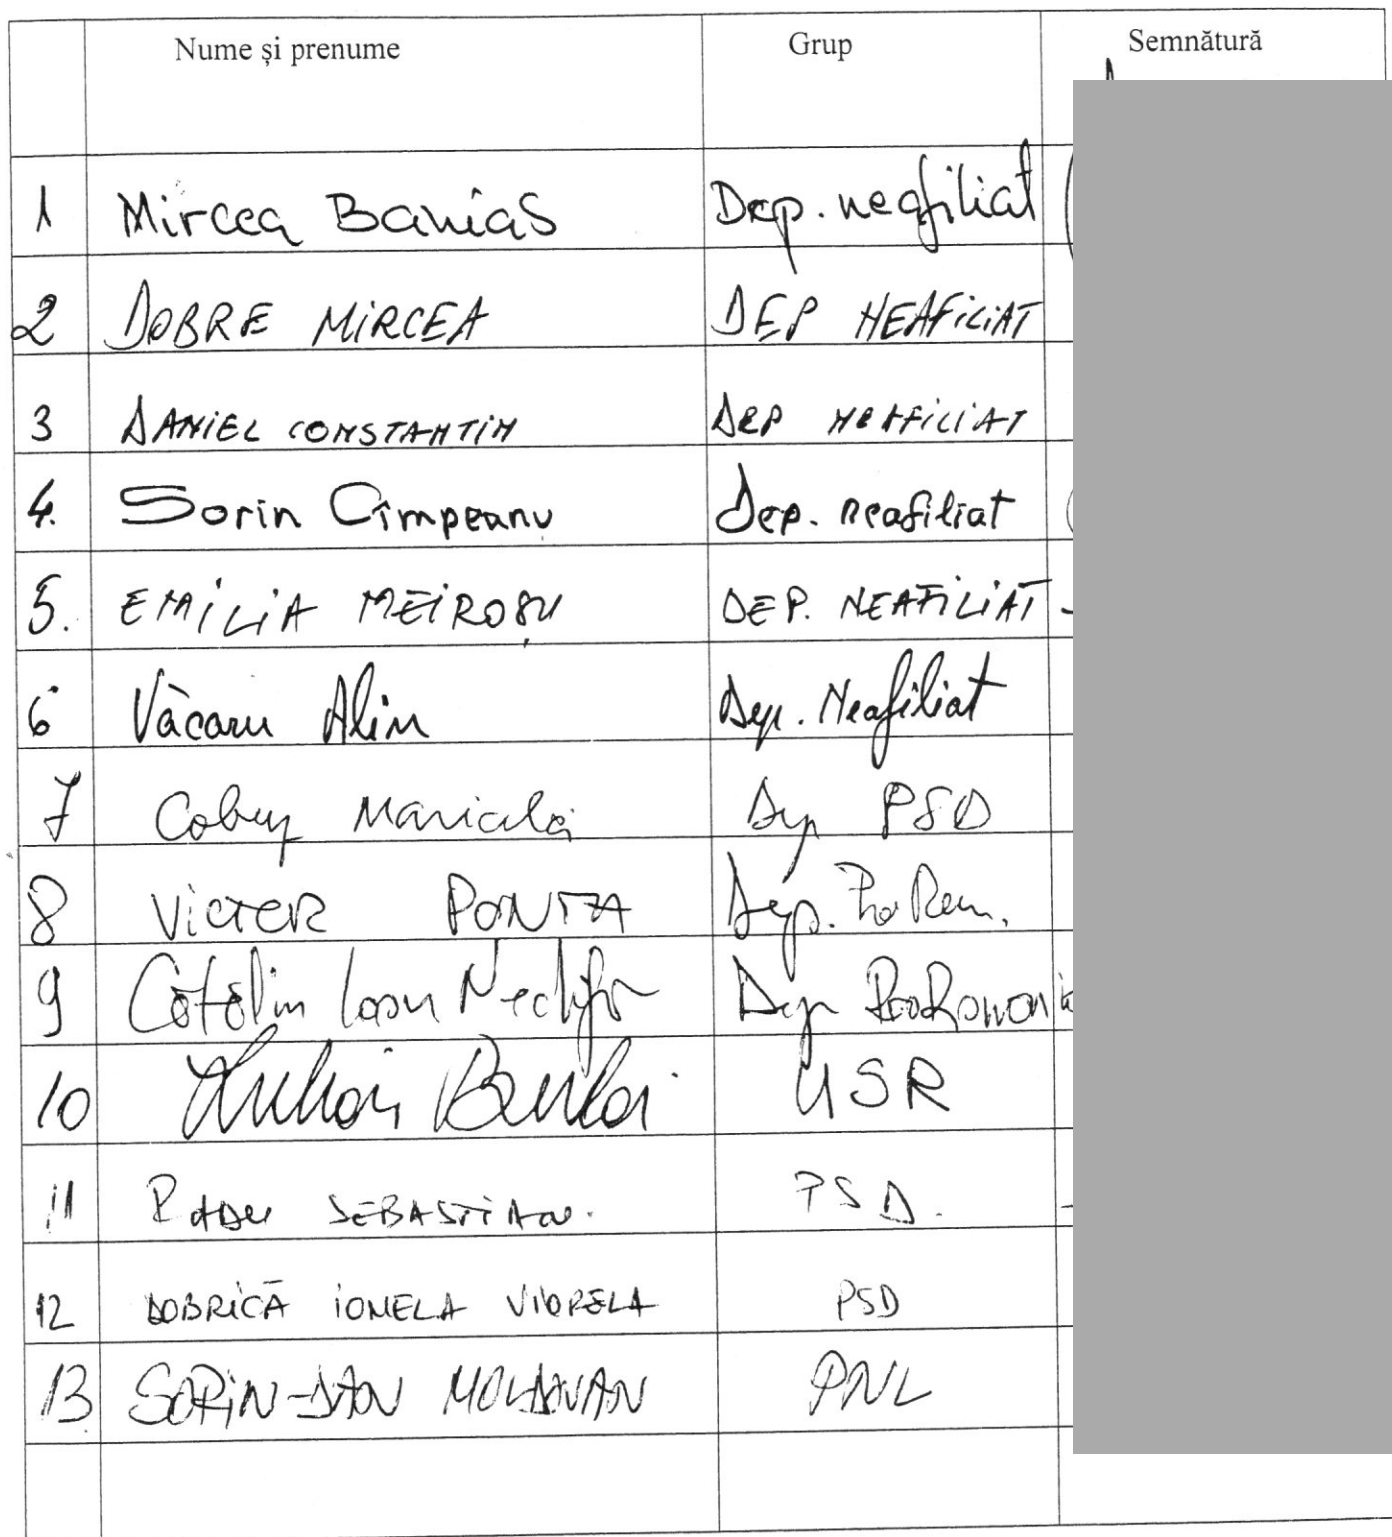 Nume și prenume Grup Semnătură
1 Mircea Banias Dep. neafiliat
2 DOBRE MIRCEA DEP NEAFILIAT
3 DANIEL CONSTANTIN DEP NEAFILIAT
4. Sorin Cîmpeanu Dep. neafiliat
5. EMILIA MEIROȘU DEP. NEAFILIAT
6 Văcaru Alin Dep. Neafiliat
7 Cobuz Maricela Dep PSD
8 VICTOR PONTA Dep. Pro Rom.
9 Cătălin Ioan Nechifor Dep ProRomania
10 USR
11 RADU SEBASTIAN. PSD.
12 DOBRICĂ IONELA VIORELA PSD
13 SORIN-DAN MOLDOVAN PNL